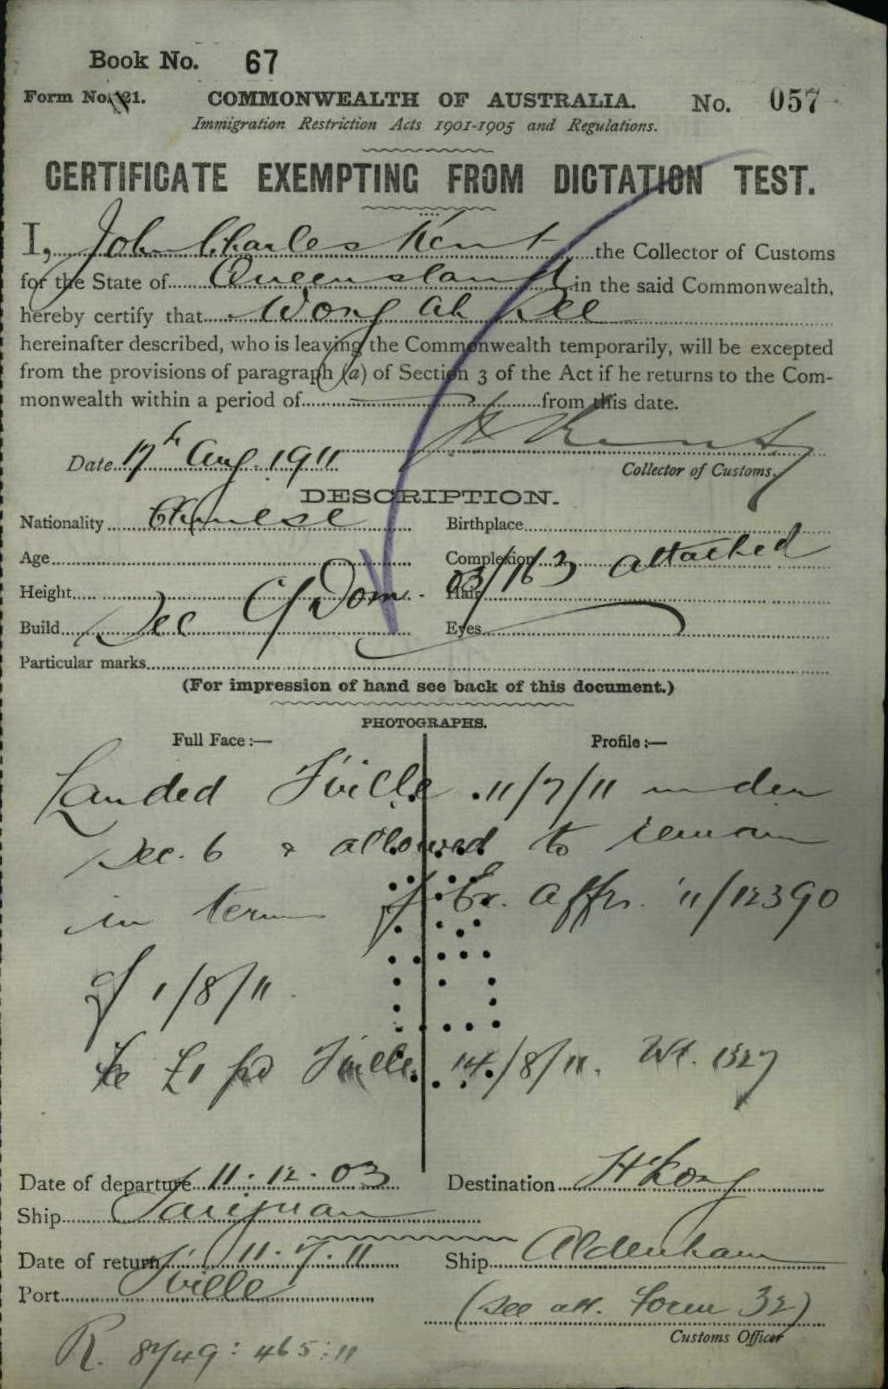 Book No. 67
Form No. 21. COMMONWEALTH OF AUSTRALIA. No. 057
Immigration Restriction Acts 1901-1905 and Regulations.
CERTIFICATE EXEMPTING FROM DICTATION TEST.
I, John Charles Kent the Collector of Customs
for the State of Queensland in the said Commonwealth,
hereby certify that Wong Ah Lee
hereinafter described, who is leaving the Commonwealth temporarily, will be excepted
from the provisions of paragraph (a) of Section 3 of the Act if he returns to the Com-
monwealth within a period of from this date.
Date 17th Aug. 1911
Collector of Customs.
DESCRIPTION.
Nationality Chinese Birthplace
Age Complexion
Height Hair 03/163 attached
Build Eyes
See C/Dom.
Particular marks
(For impression of hand see back of this document.)
PHOTOGRAPHS.
Full Face :— Profile :—
Landed T'ville 11/7/11 under
Sec. 6 & allowed to remain
in terms of Ex. Affrs. '11/12390
of 1/8/11.
Fee £1 pd T'ville 14/8/11. 1327
Date of departure 11.12.03 Destination H'Kong
Ship Taiyuan
Date of return 11.7.11 Ship Aldenham
Port T'ville
(See att. Form 32)
Customs Officer
R. 8749:465:11